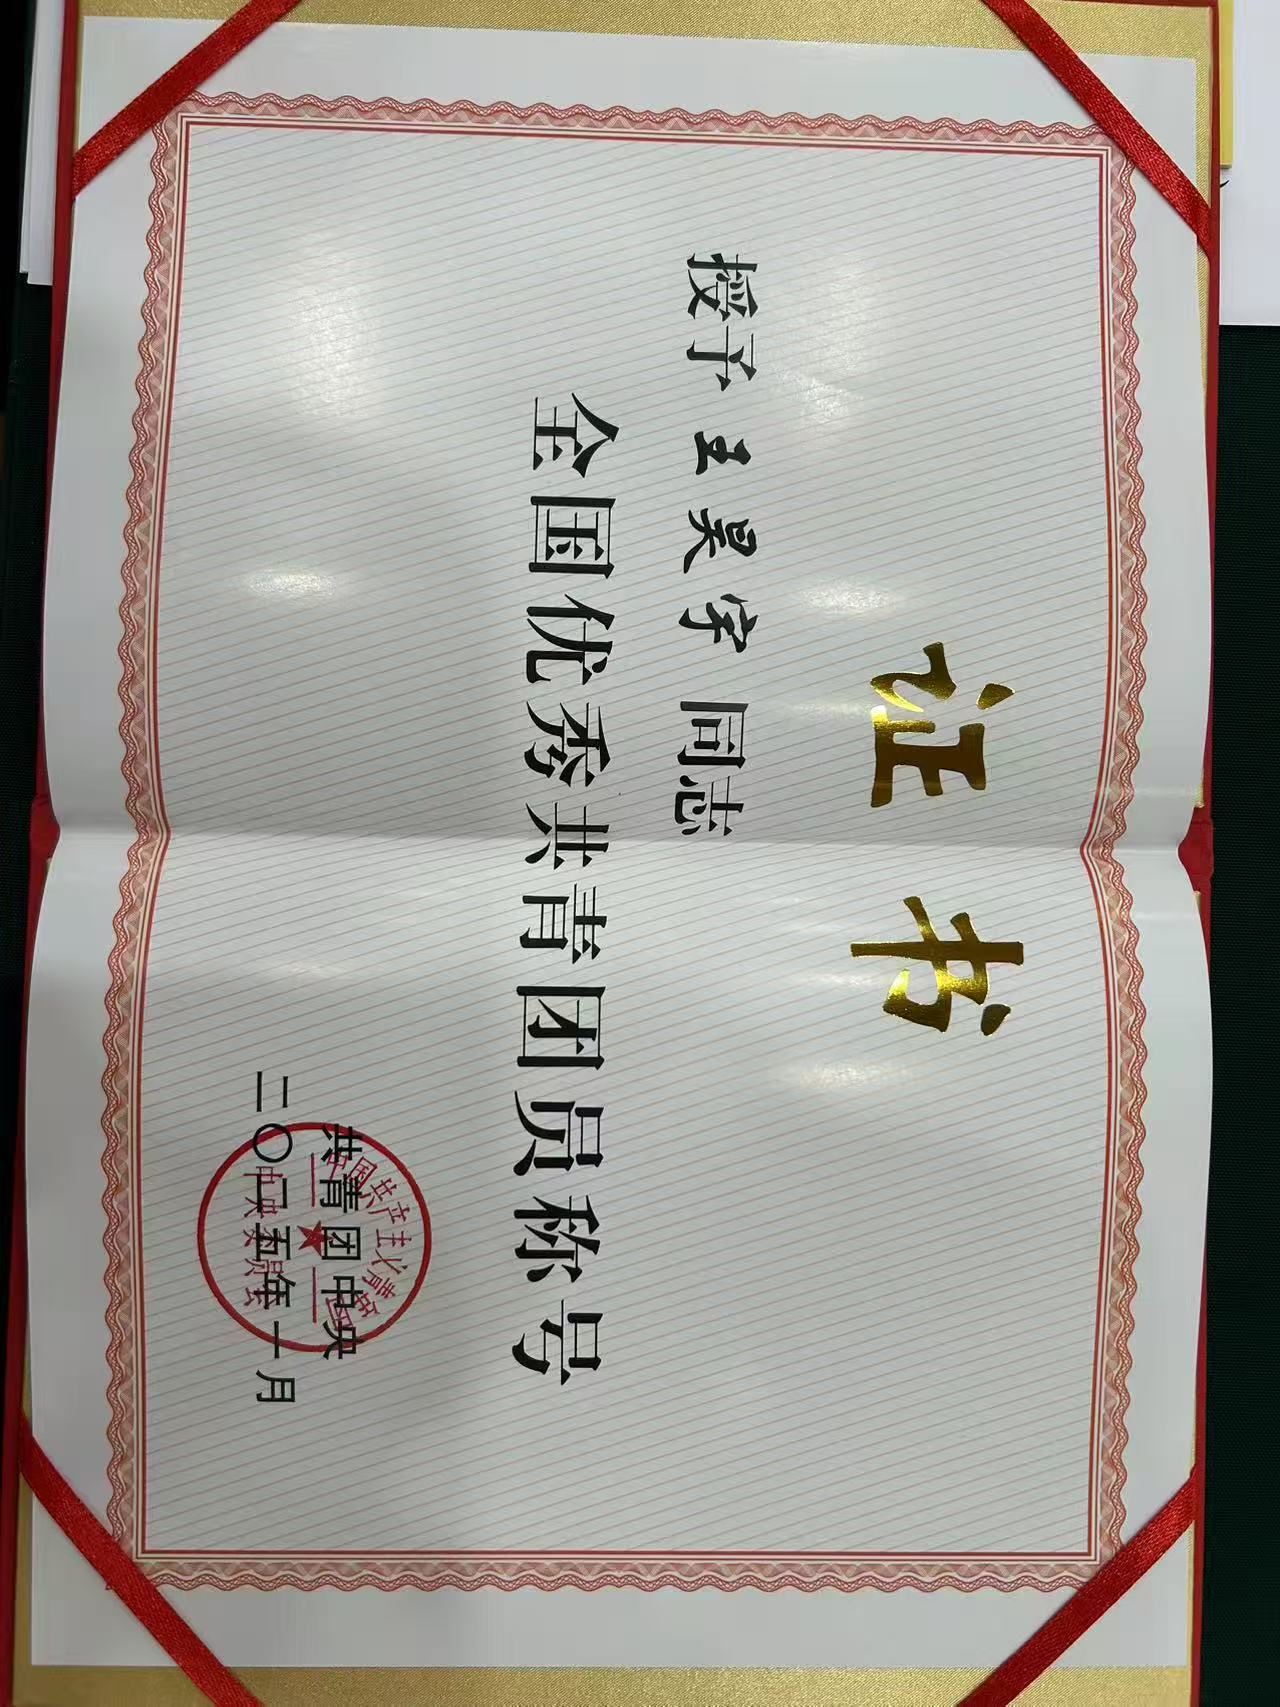 证书
授予 王昊宇 同志
全国优秀共青团员称号
共青团中央
二〇二五年一月
中国共产主义青年团
中央委员会